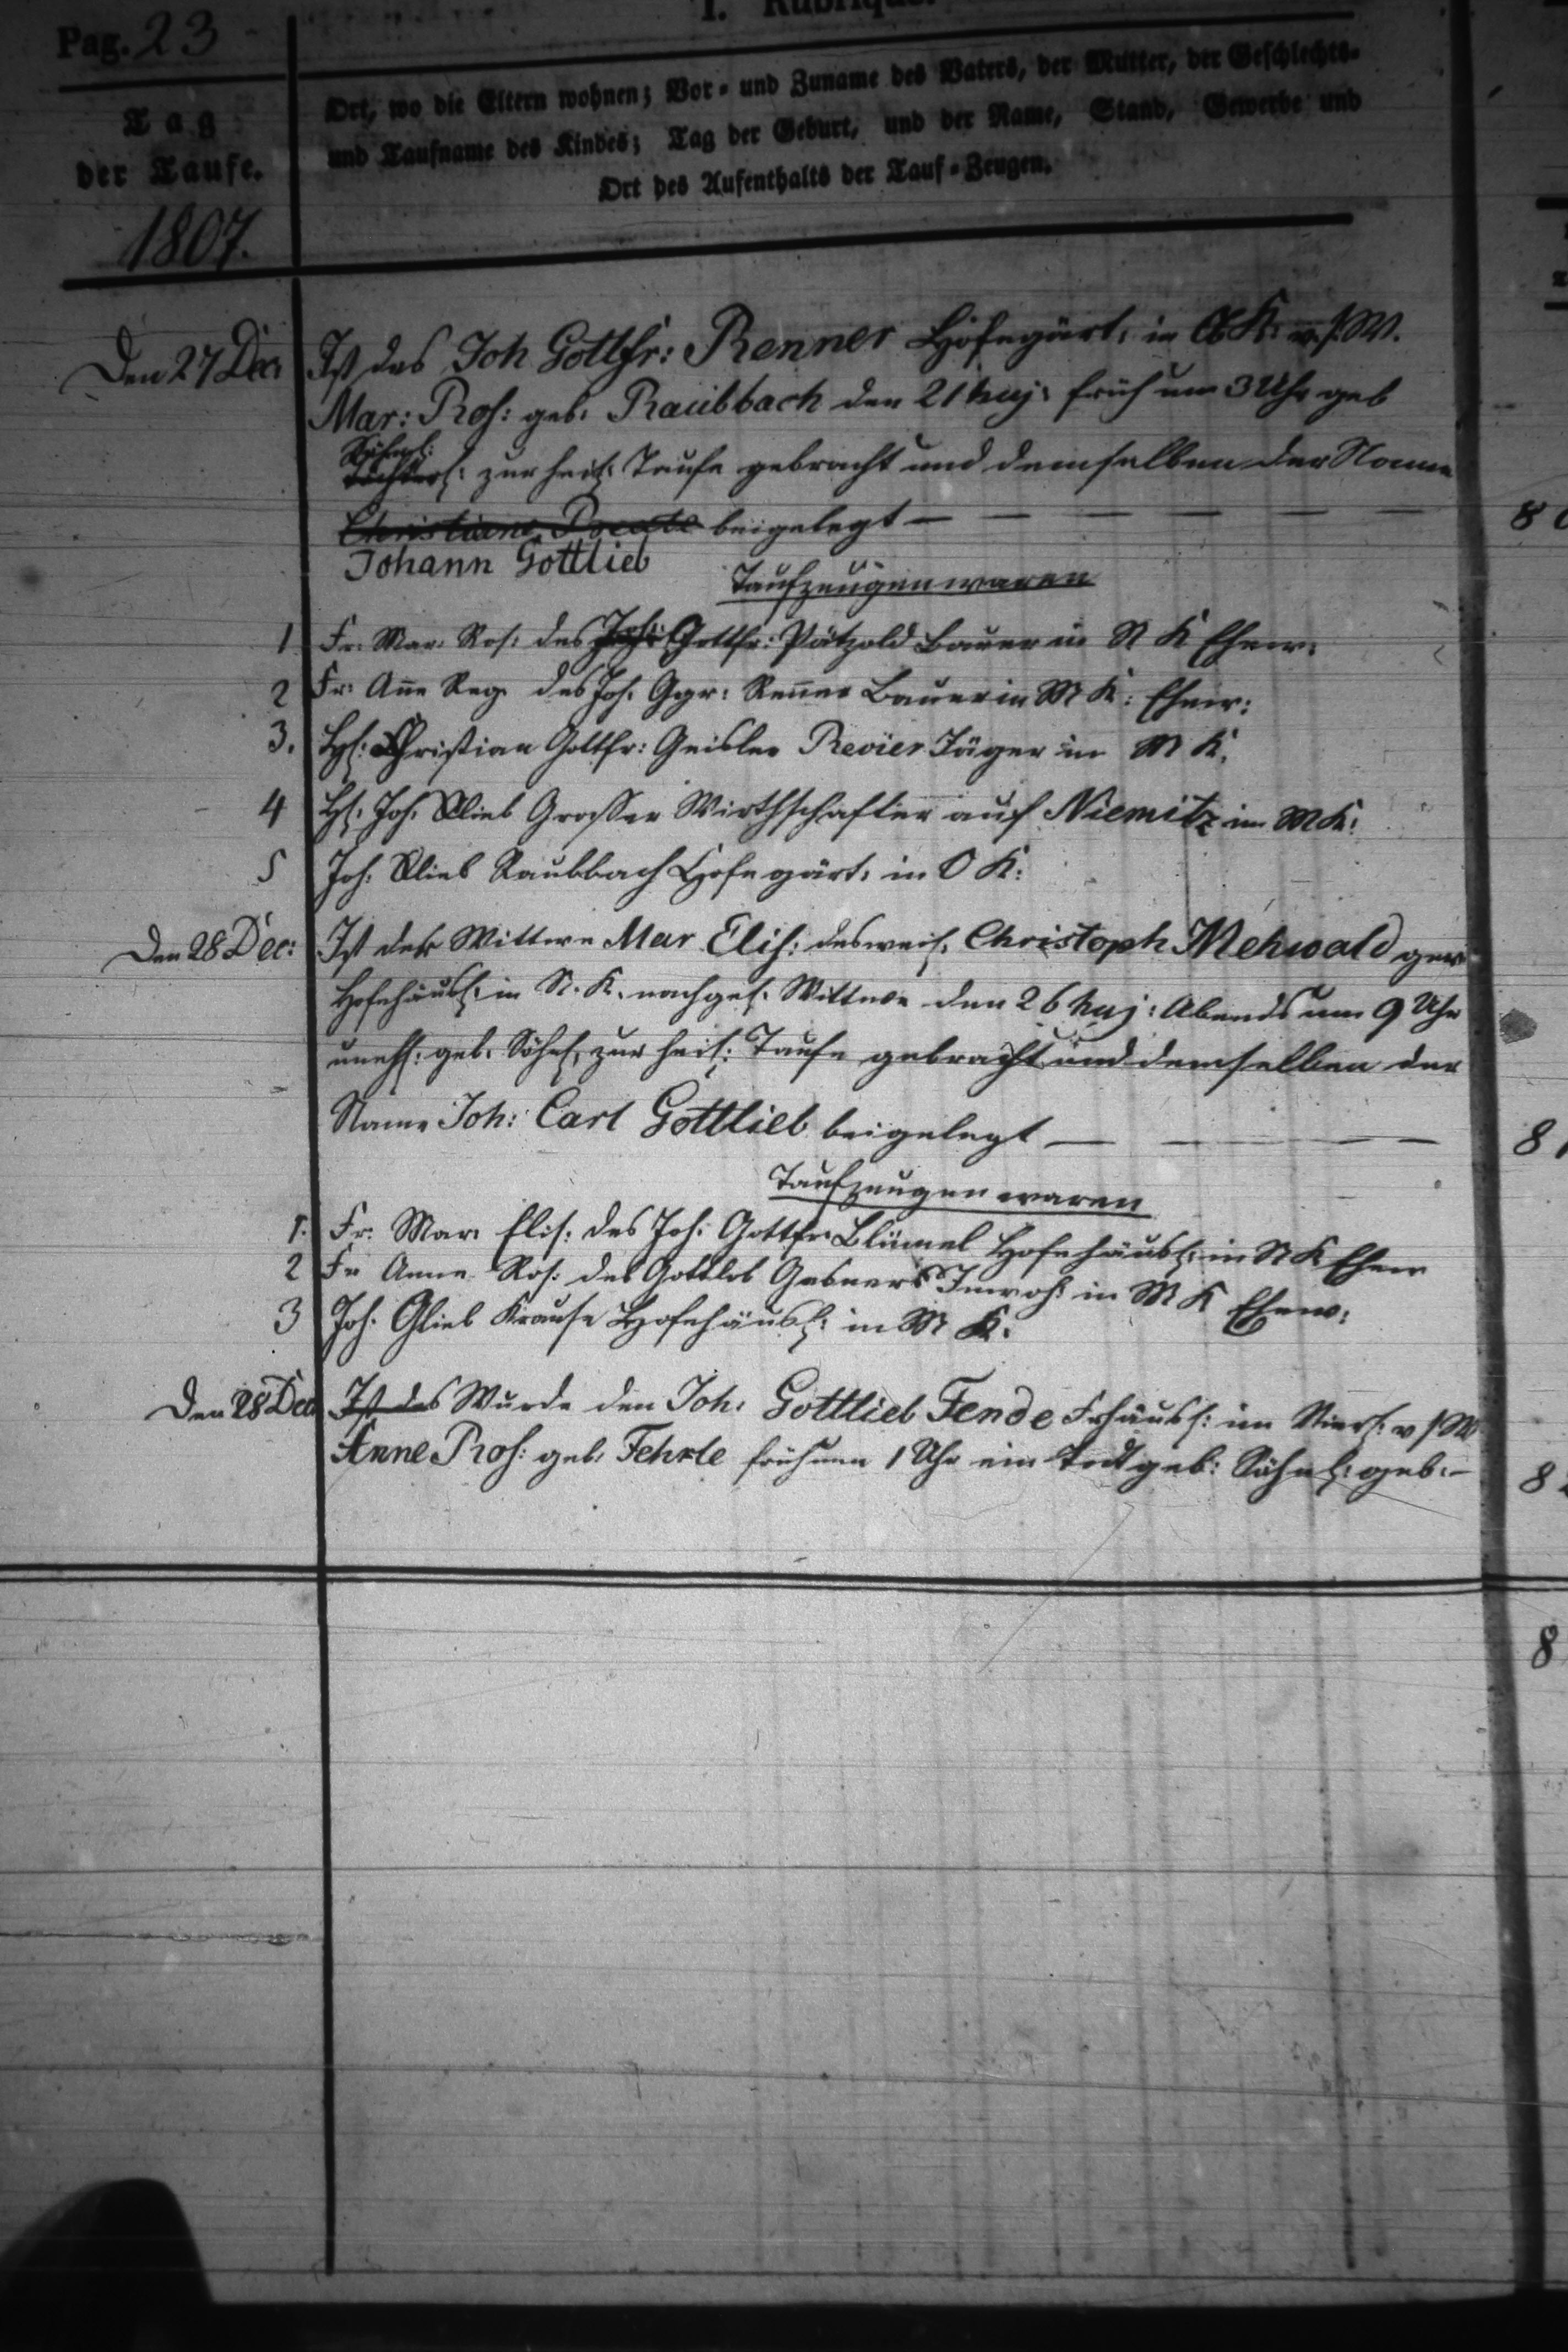 Pag. 23
I. Rubrique.
Tag
der Taufe.
1807.
Ort, wo die Eltern wohnen; Vor- und Zuname des Vaters, der Mutter, der Geschlechts-
und Taufname des Kindes; Tag der Geburt, und der Name, Stand, Gewerbe und
Ort des Aufenthalts der Tauf-Zeugen.
Den 27 Dec: Ist des Joh Gottfr: Renner Hofegärt: in K: v. s. W.
Mar: Ros: geb: Raubbach den 21 huj: früh um 3 Uhr geb
Söhnl:
Töchterl: zur heil: Taufe gebracht und demselben der Name
Christiane Beate beigelegt — — — — — —
Johann Gottlieb
Taufzeugen waren
1 Fr: Mar: Ros: des Joh: Gottfr: Pätzold Bauer in N K Ehew:
2 Fr: Ane Reg: des Joh: Ggr: Renner Bauer in M K: Ehew:
3. H: Christian Gottfr: Geisler Revier Jäger in M K.
4 H: Joh: Glieb Grosser Wirthschafter auf Niemitz in M K:
5 Joh: Glieb Raubbach Hofegärt: in O K:
Den 28 Dec: Ist der Wittwe Mar Elis: des weil: Christoph Mehwald gew:
Hofehäusl: in N. K. nachgel: Wittwe den 26 huj: Abends um 9 Uhr
unehl: geb: Söhnl: zur heil: Taufe gebracht und demselben der
Name Joh: Carl Gottlieb beigelegt — — — —
Taufzeugen waren
1. Fr: Mar: Elis: des Joh: Gottfr: Blümel Hofehäusl: in N K Ehew
2 Fr Anne Ros: des Gottlob Gasners Inwoh: in M K Ehew:
3 Joh: Glieb Krause Hofehäusl: in M K:
Den 28 Dec Ist des Wurde den Joh: Gottlieb Fende Frhäusl: im v s W
Anne Ros: geb: Fehrle früh um 1 Uhr ein todtgeb: Söhnl: geb: —